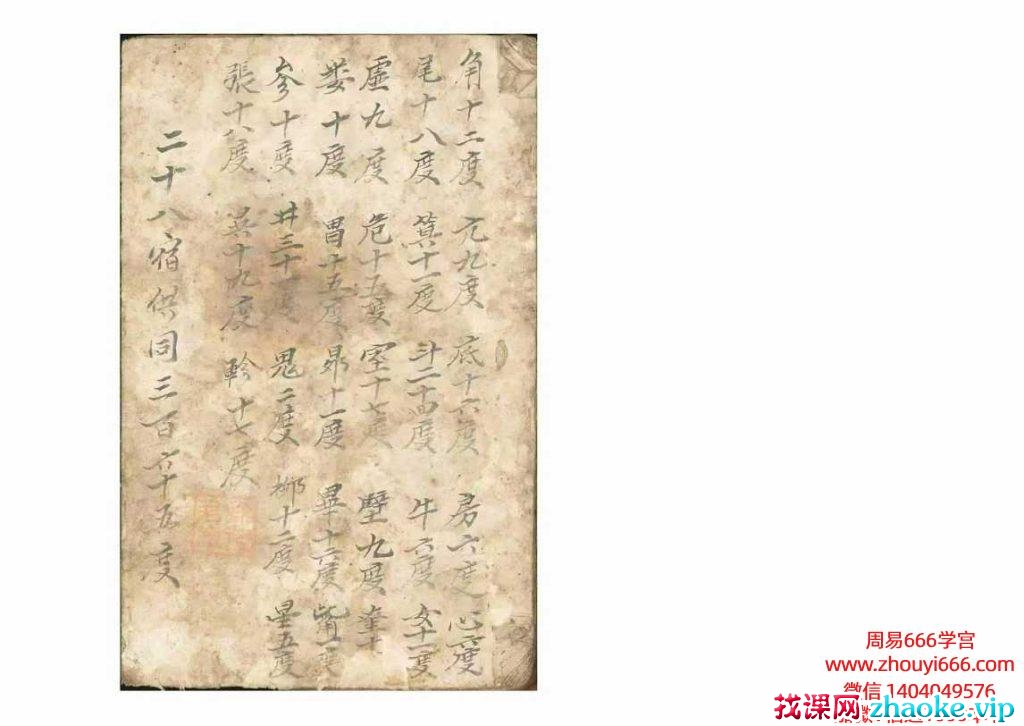 角十二度 亢九度 底十六度 房六度 心六度
尾十八度 箕十一度 斗二十四度 牛六度 女十一度
虚九度 危十五度 室十七度 壁九度 奎十
娄十度 胃十五度 昴十一度 畢十六度 觜一度
參十度 井三十一度 鬼二度 柳十二度 星五度
張十八度 十九度 軫十七度
二十八宿供同三百六十五度
周易666学宫
www.zhouyi666.com
微信 1404049576
找课网zhaoke.vip